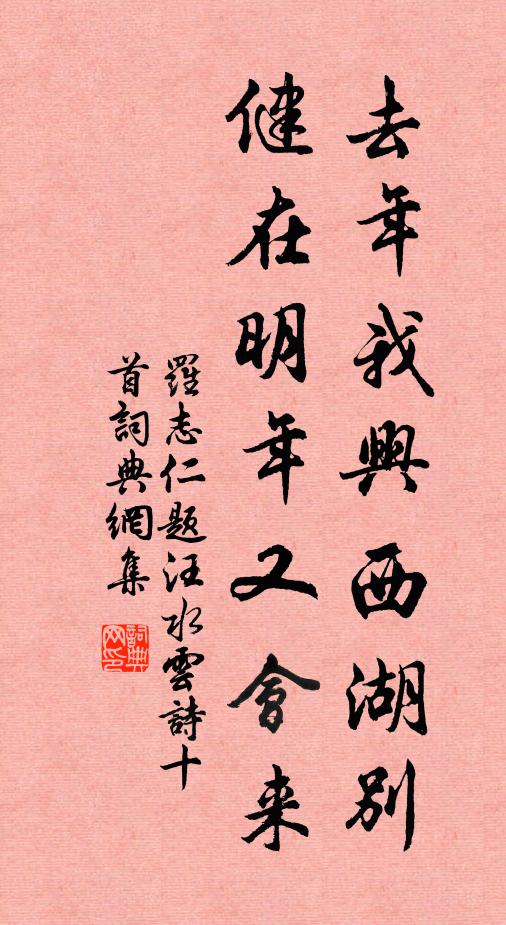 去年我與西湖別
健在明年又會来
羅志仁題汪水雲詩十
首詞典網集
詞典网印